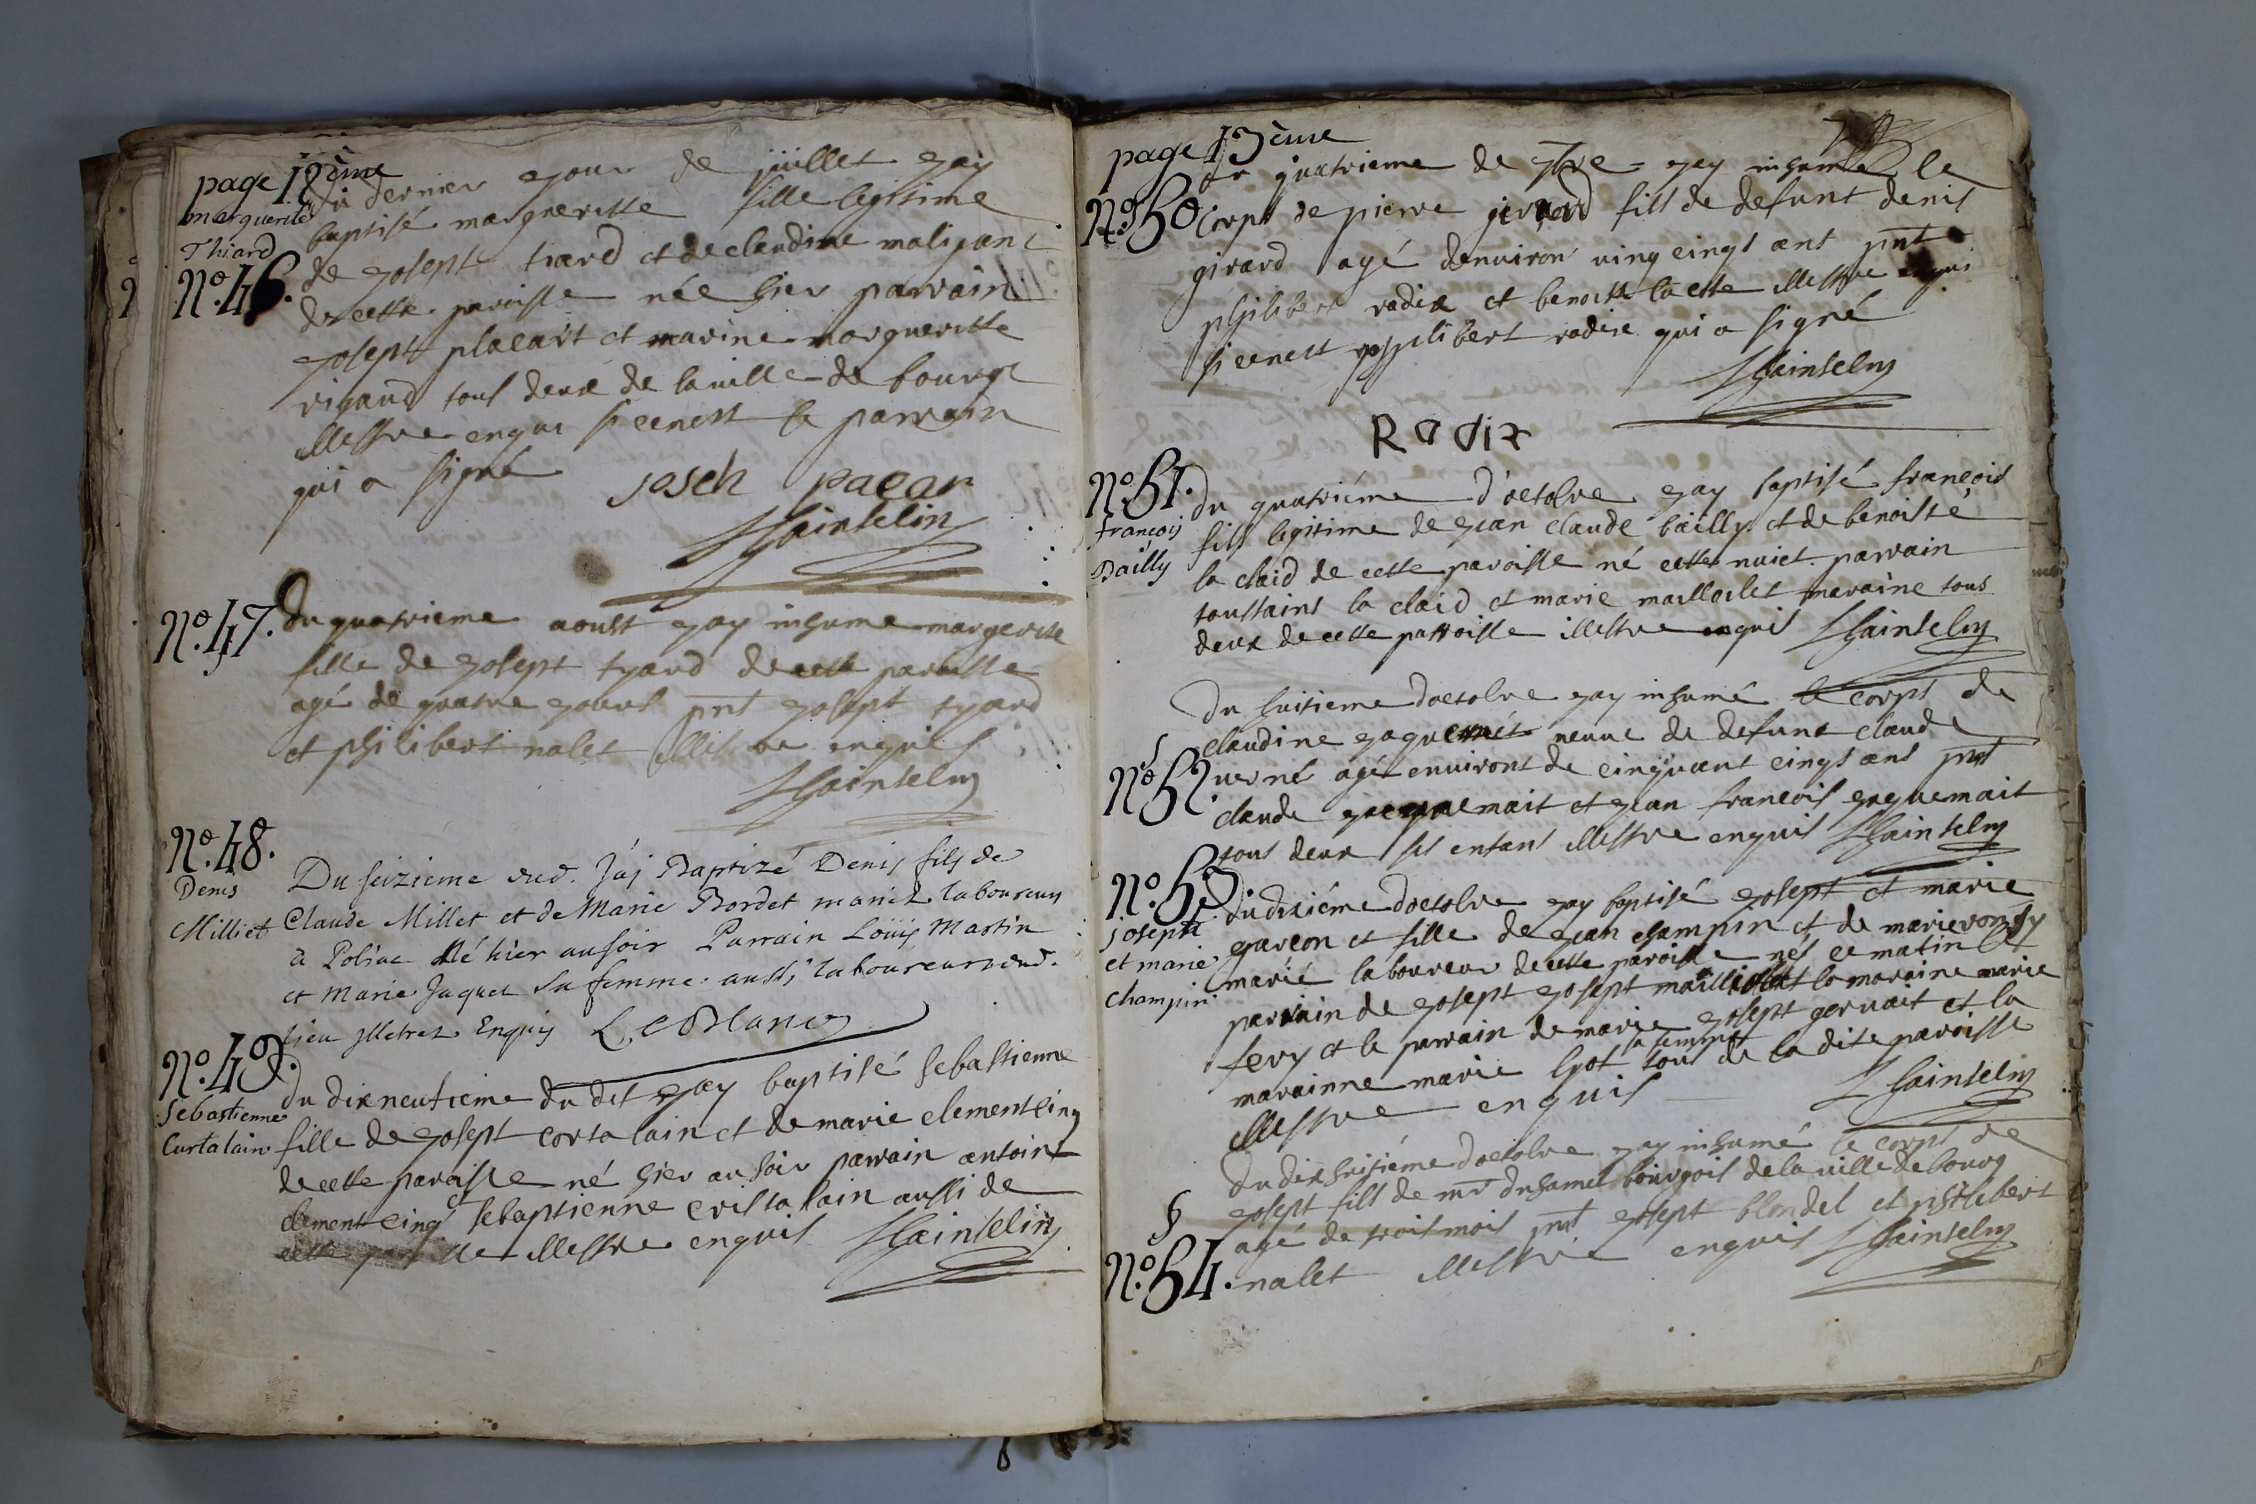 page 12ème
du dernier jour de juillet jay
marguerite
Thiard
baptisé margueritte fille legitime
No. 46.
de joseph tiard et de claudine
de cette paroisse née hier parrain
joseph placart et marine margueritte
rigaud tous deux de la ville de bourg
illestre enquis si cenest le parrain
qui a signé
josch pacar
No. 47.
du quatrieme aoust jay inhume margerite
fille de joseph tyard de cette paroisse
agé de quatre jours pnt joseph tyard
et philibert nalet illestre enquis
No. 48.
Denis
Milliet
Du seizieme dud. j'aj Baptizé Denis fils de
Claude Millet et de Marie Bordet mariez laboureurs
à Poliac Né hier au soir Parrain Loüis Martin
et Marie Jaquet sa femme aussi laboureurs dud.
lieu illetrez Enquis LeBlanc
No. 49.
Sebastienne
Curtalain
du dixneufieme du dit jay baptisé sebastienne
fille de joseph cortalain et de marie clement cinq
de cette paroisse né hier au soir parrain antoine
clement cinq et sebaptienne cristalain aussi de
cette illestre enquis
page 13ème
No. 50
du quatrieme de 7bre jay inhumé le
corps de pierre gerard fils de defunt denis
girard agé denuiron uing cings ans pnt
philibert radix et benoist illestre enquis
si cenest philibert radix qui a signé
RADix
No. 51.
françois
Bailly
du quatriéme d'octobre jay baptisé françois
fils legitime de jean claude bailly et de benoiste
la claid de cette paroisse né cette nuict parrain
toussains la claid et marie maraine tous
deux de cette parroisse illestre enquis
No. 52.
du huitieme doctobre jay inhumé le corps de
claudine neuue de defunt claude
uerné agé enuiront de cinquant cings ans pnt
claude et jean francois jaquemait
tous deux ses enfans illestre enquis
No. 53.
joseph
et marie
champin
du diziéme doctobre jay baptisé joseph et marie
garcon et fille de jean champin et de marie
marié laboureur de cette paroisse nés ce matin le
parrain de joseph joseph et la maraine marie
fery et le parrain de marie joseph geruait et la
marainne marie sa femme tous de la dite paroisse
illestre enquis
§
No. 54.
du dixhuitiéme doctobre jay inhumé le corps de
joseph fils de mr duhamel bourgois de la uille de bourg
agé de trois mois pnt joseph blondel et philibert
nalet illestre enquis